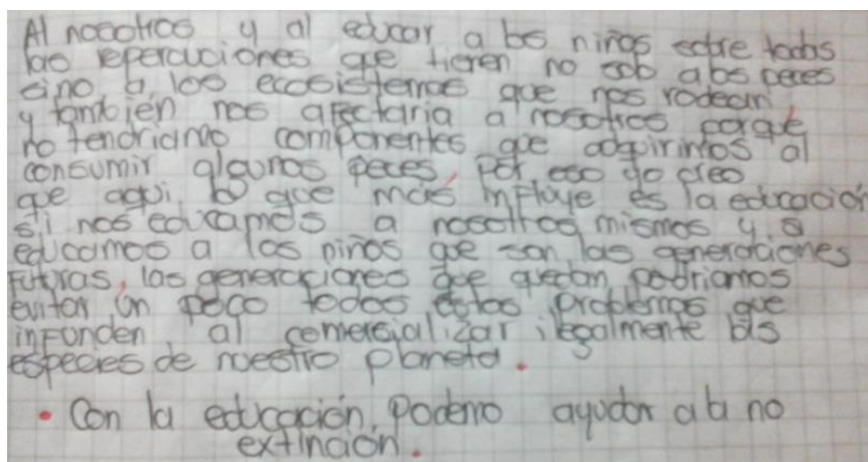 Al nosotros y al educar a los niños sobre todas
las repercuciones que tienen no solo a los peces
sino a los ecosistemas que nos rodean
y también nos afectaria a nosotros porque
no tendriamo componentes que adquirimos al
consumir algunos peces, por eso yo creo
que aqui lo que más influye es la educación
si nos educamos a nosotros mismos y a
educamos a los niños que son las generaciones
futuras, las generaciones que quedan, podriamos
evitar un poco todos estos problemas que
infunden al comersializar ilegalmente las
especies de nuestro planeta.
• Con la educación, Podemo ayudar a la no
extinción.